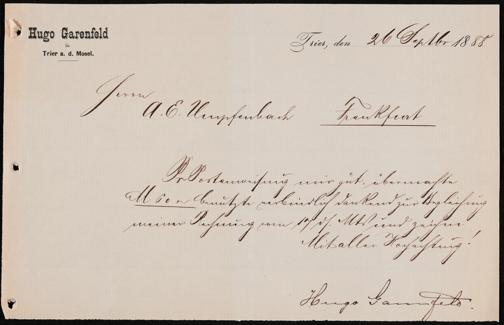 Hugo Garenfeld
in
Trier a. d. Mosel.
Trier, den 26 Septbr 1888
Herrn
A. E. Umpfenbach Frankfurt
Pr Postanweisung mir gut. übermachte
M 60 benützte verbindlich dankend zur Begleichung
meiner Rechnung vom 17/ ds. Mts und zeichne
Mit aller Hochachtung!
Hugo Garenfeld.